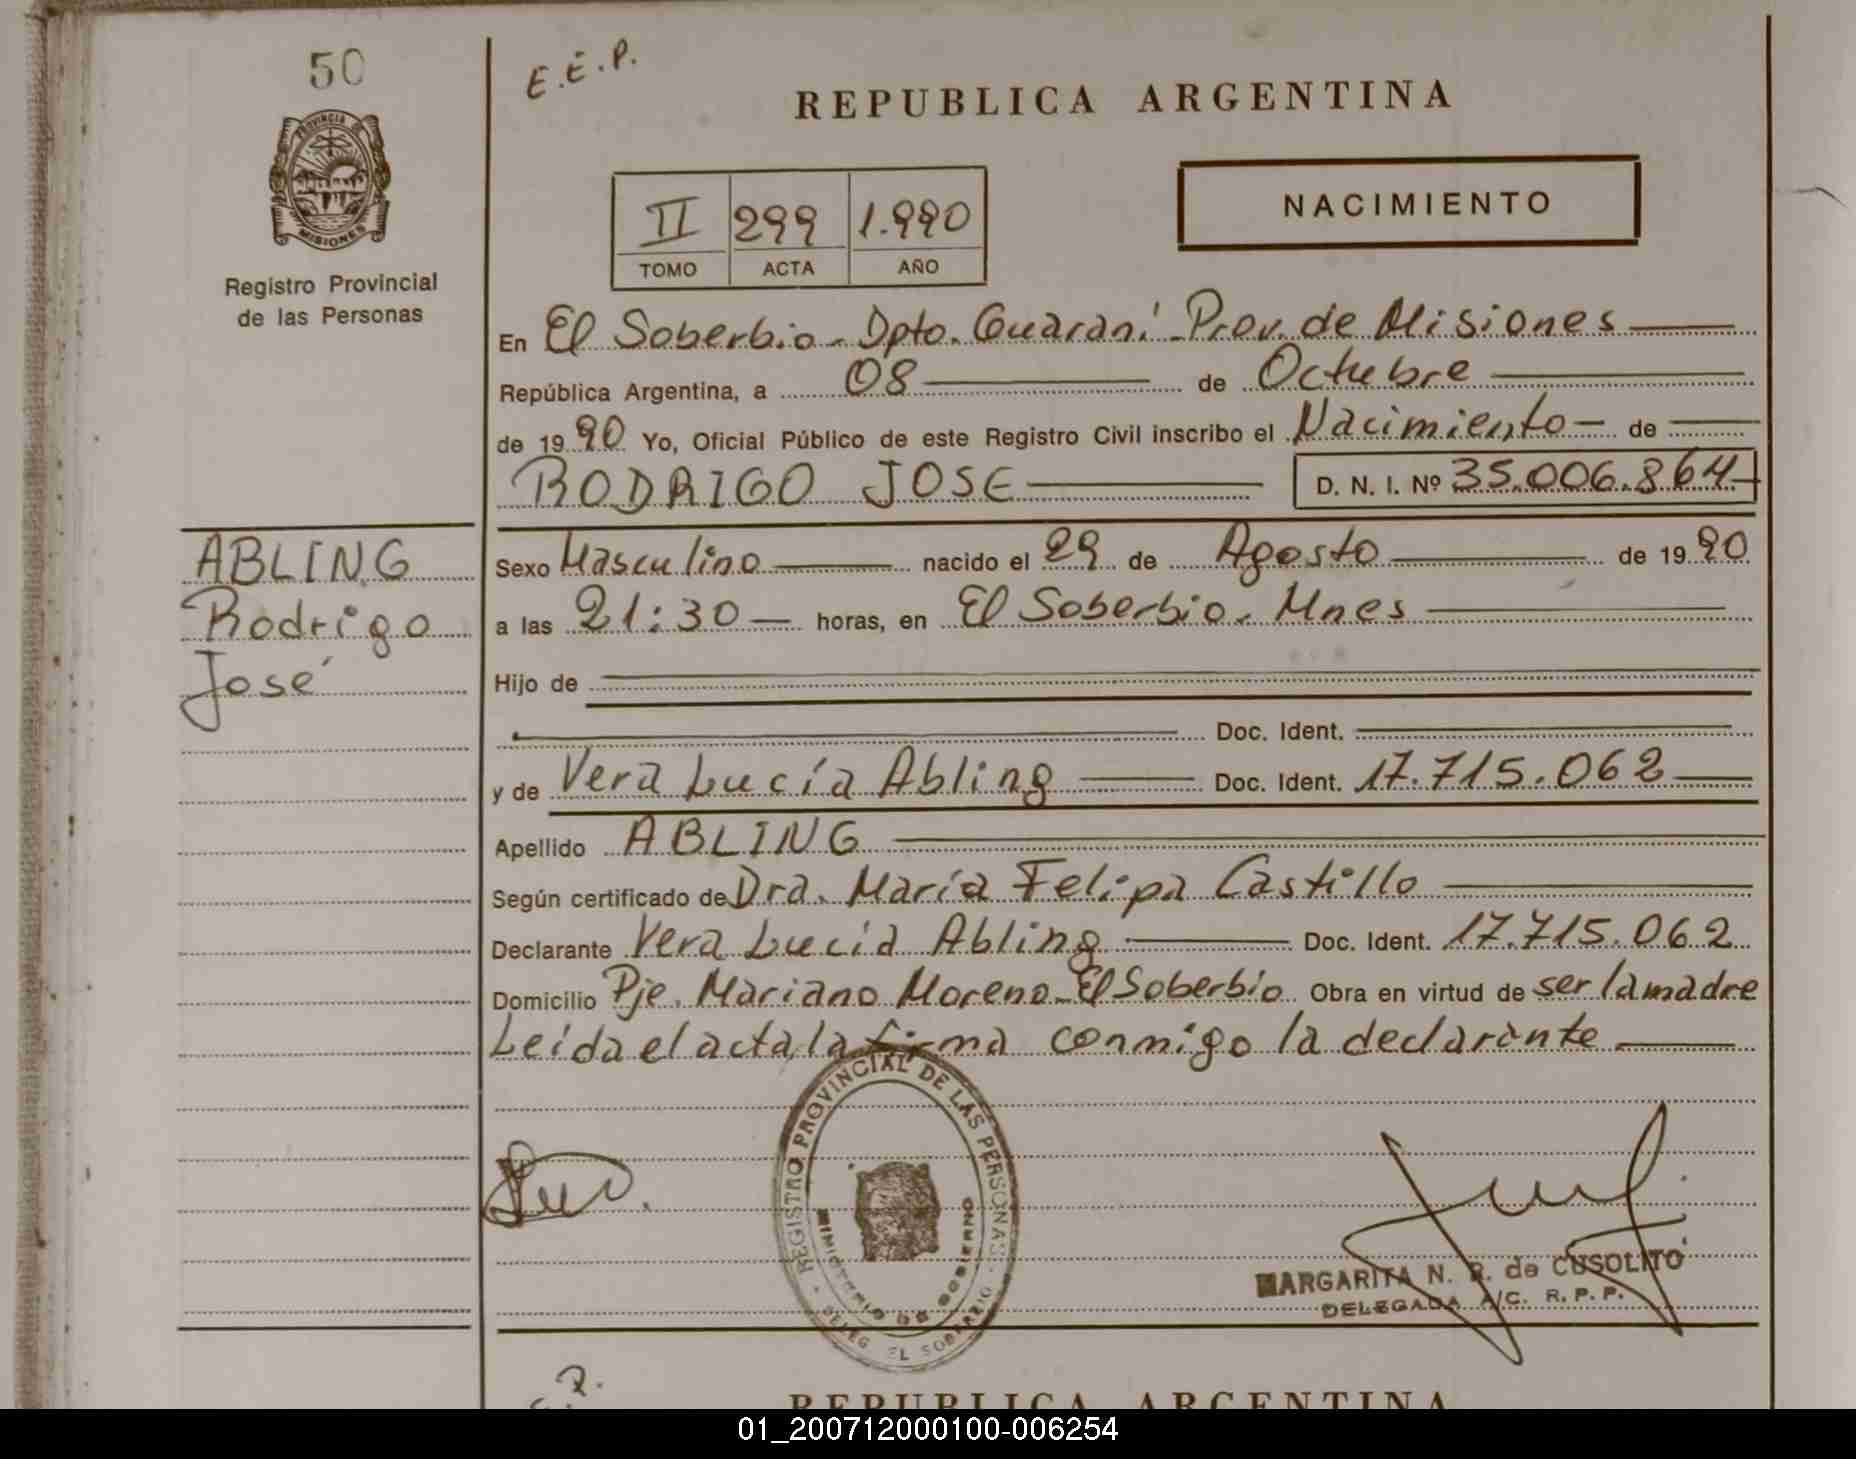 50
E.E.P.
REPUBLICA ARGENTINA
PROVINCIA DE
MISIONES
Registro Provincial
de las Personas
II 299 1.990
TOMO ACTA AÑO
NACIMIENTO
En El Soberbio - Dpto. Guaraní - Prov. de Misiones
República Argentina, a 08 de Octubre
de 1990 Yo, Oficial Público de este Registro Civil inscribo el Nacimiento - de
RODRIGO JOSE D. N. I. Nº 35.006.864
ABLING
Rodrigo
José
Sexo Masculino nacido el 29 de Agosto de 1990
a las 21:30 horas, en El Soberbio. Mnes
Hijo de
Doc. Ident.
y de Vera Lucía Abling Doc. Ident. 17.715.062
Apellido ABLING
Según certificado de Dra. María Felipa Castillo
Declarante Vera Lucía Abling Doc. Ident. 17.715.062
Domicilio Pje. Mariano Moreno - El Soberbio Obra en virtud de ser la madre
Leída el acta, la firma conmigo la declarante
REGISTRO PROVINCIAL DE LAS PERSONAS
MINISTERIO DE GOBIERNO
DELEG EL SOBERBIO
MARGARITA N. R. de CUSOLITO
DELEGADA A/C. R. P. P.
REPUBLICA ARGENTINA
01_200712000100-006254